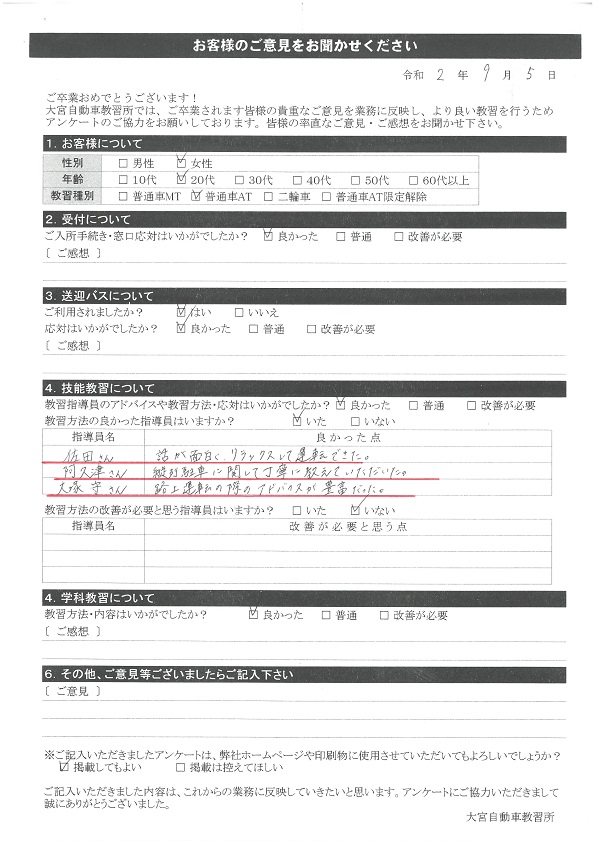 お客様のご意見をお聞かせください
令和 2 年 9 月 5 日
ご卒業おめでとうございます！
大宮自動車教習所では、ご卒業されます皆様の貴重なご意見を業務に反映し、より良い教習を行うため
アンケートのご協力をお願いしております。皆様の率直なご意見・ご感想をお聞かせ下さい。
1. お客様について
性別 □ 男性 ☑ 女性
年齢 □ 10代 ☑ 20代 □ 30代 □ 40代 □ 50代 □ 60代以上
教習種別 □ 普通車MT ☑ 普通車AT □ 二輪車 □ 普通車AT限定解除
2. 受付について
ご入所手続き・窓口応対はいかがでしたか？ ☑ 良かった □ 普通 □ 改善が必要
〔 ご感想 〕
3. 送迎バスについて
ご利用されましたか？ ☑ はい □ いいえ
応対はいかがでしたか？ ☑ 良かった □ 普通 □ 改善が必要
〔 ご感想 〕
4. 技能教習について
教習指導員のアドバイスや教習方法・応対はいかがでしたか？ ☑ 良かった □ 普通 □ 改善が必要
教習方法の良かった指導員はいますか？ ☑ いた □ いない
指導員名 良かった点
佐田さん 話が面白く、リラックスして運転できた。
阿久津さん 縦列駐車に関して丁寧に教えていただいた。
大塚守さん 路上運転の際のアドバイスが豊富だった。
教習方法の改善が必要と思う指導員はいますか？ □ いた ☑ いない
指導員名 改善が必要と思う点
4. 学科教習について
教習方法・内容はいかがでしたか？ ☑ 良かった □ 普通 □ 改善が必要
〔 ご感想 〕
6. その他、ご意見等ございましたらご記入下さい
〔 ご意見 〕
※ご記入いただきましたアンケートは、弊社ホームページや印刷物に使用させていただいてもよろしいでしょうか？
☑ 掲載してもよい □ 掲載は控えてほしい
ご記入いただきました内容は、これからの業務に反映していきたいと思います。アンケートにご協力いただきまして
誠にありがとうございました。
大宮自動車教習所